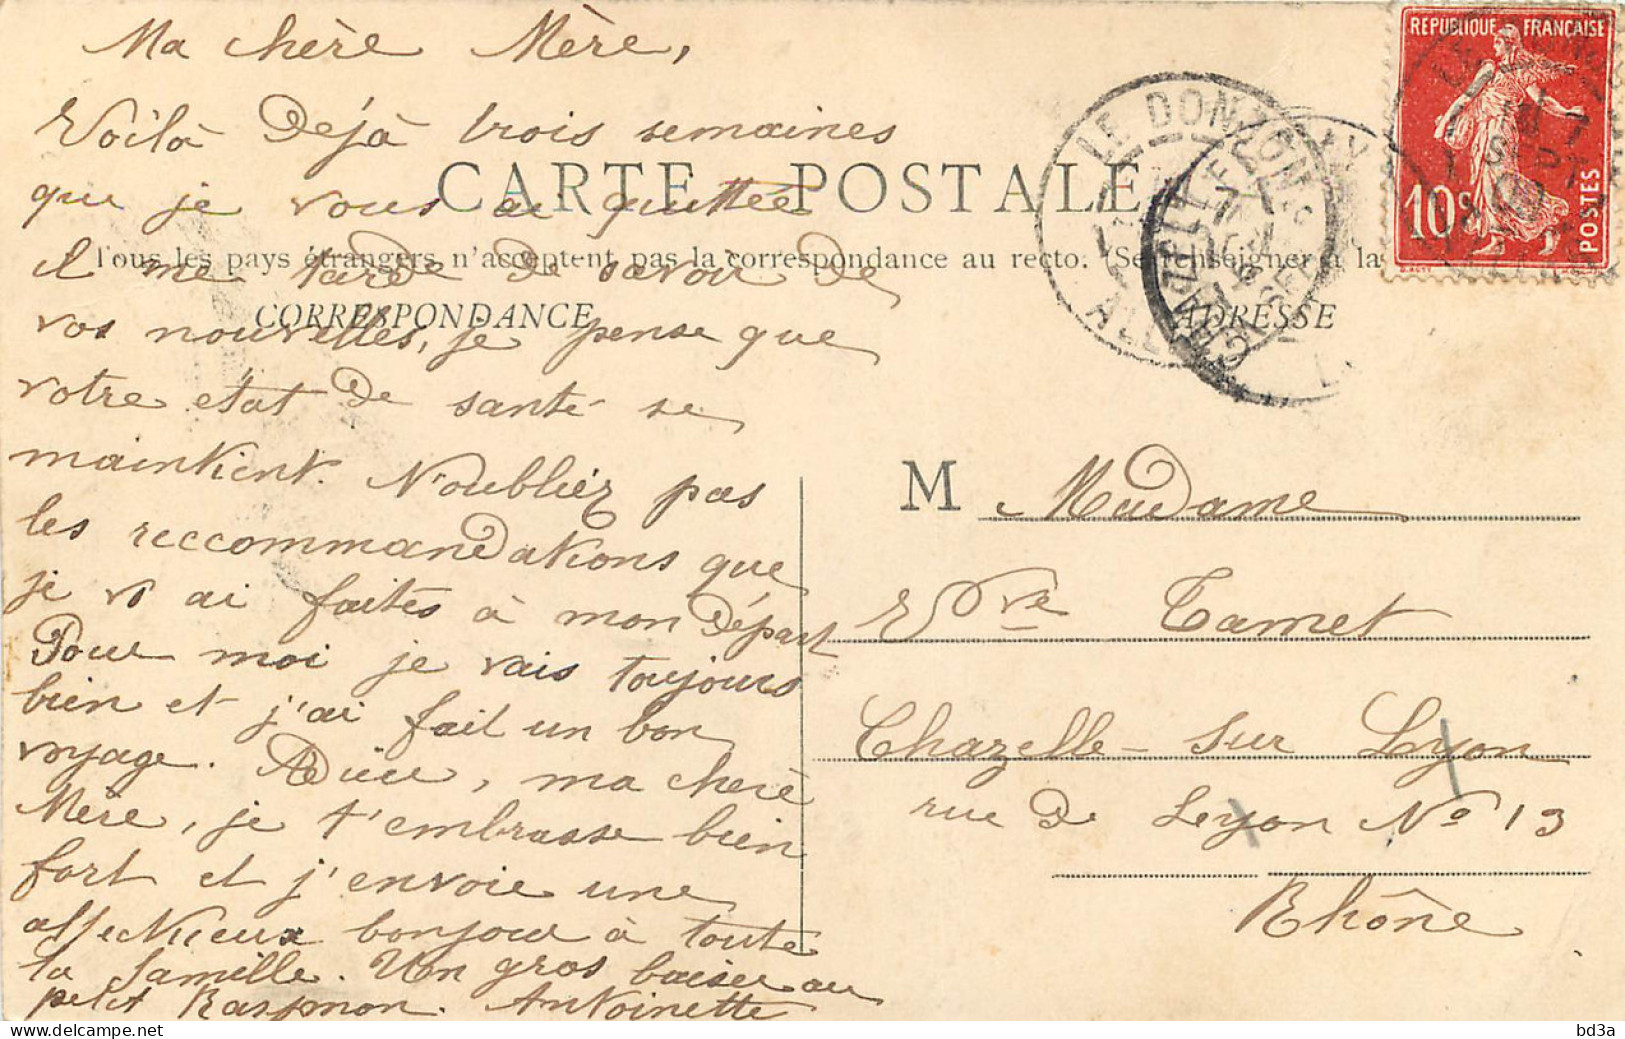 Ma chère Mère,
Voilà Déjà trois semaines
que je vous ai quittée
il me tarde de savoir de
vos nouvelles, je pense que
votre état de santé se
maintient. N'oubliez pas
les reccommandations que
je v ai faites à mon Départ
Pour moi je vais toujours
bien et j'ai fait un bon
voyage. Adieu, ma chère
Mère, je t'embrasse bien
fort et j'envoie une
affectueux bonjour à toute
la famille. Un gros baiser au
petit Raymon. Antoinette
CARTE POSTALE
Tous les pays étrangers n'acceptent pas la correspondance au recto. (Se renseigner à la
CORRESPONDANCE
ADRESSE
LE DONZON
ALL
REPUBLIQUE FRANÇAISE
10c
POSTES
M Madame
Vve Tamet
Chazelle-sur Lyon
rue De Lyon No 13
Rhône
bd3a